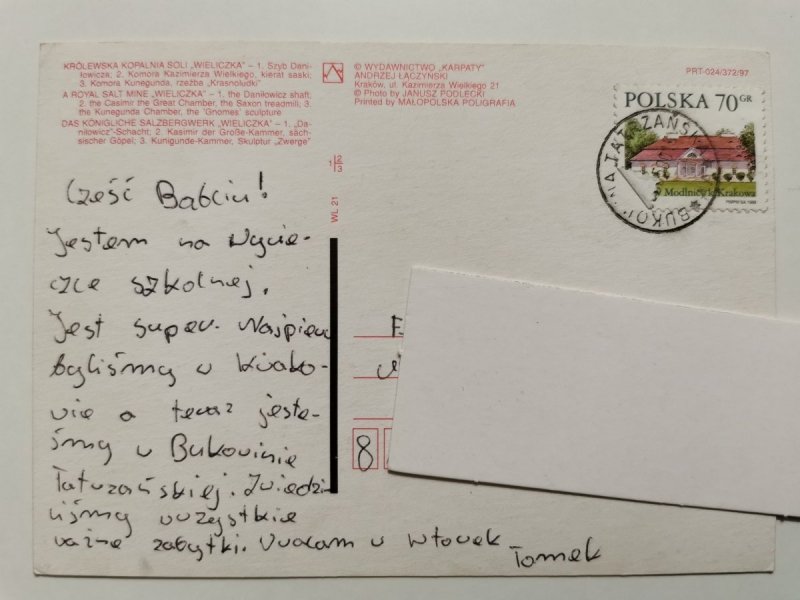 KRÓLEWSKA KOPALNIA SOLI „WIELICZKA” – 1. Szyb Dani-
łowicza; 2. Komora Kazimierza Wielkiego, kierat saski;
3. Komora Kunegunda, rzeźba „Krasnoludki”
A ROYAL SALT MINE „WIELICZKA” – 1. the Daniłowicz shaft;
2. the Casimir the Great Chamber, the Saxon treadmill; 3.
the Kunegunda Chamber, the 'Gnomes' sculpture
DAS KÖNIGLICHE SALZBERGWERK „WIELICZKA” – 1. „Da-
niłowicz”-Schacht; 2. Kasimir der Große-Kammer, säch-
sischer Göpel; 3. Kunigunde-Kammer, Skulptur „Zwerge”
© WYDAWNICTWO „KARPATY”
ANDRZEJ ŁĄCZYŃSKI
Kraków, ul. Kazimierza Wielkiego 21
© Photo by JANUSZ PODLECKI
Printed by MAŁOPOLSKA POLIGRAFIA
PRT-024/372/97
POLSKA 70 GR
Modlnica k. Krakowa
1 2/3
WL 21
Cześć Babciu!
Jestem na wycie-
czce szkolnej.
Jest super. Najpierw
byliśmy w Krako-
wie a teraz jeste-
śmy w Bukowinie
Tatrzańskiej. Zwiedzi-
liśmy wszystkie
ważne zabytki. Wracam w wtorek
Tomek
8